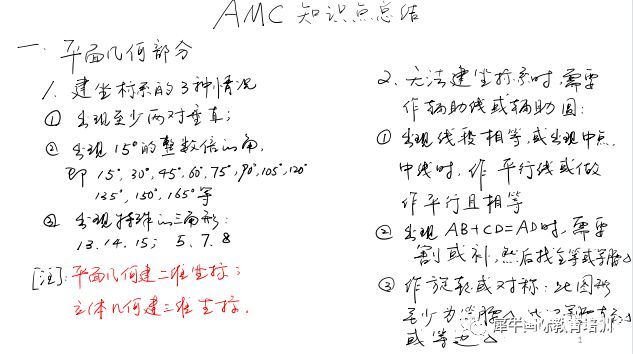 AMC 知识点总结
一. 平面几何部分
1. 建坐标系的3种情况
① 出现至少两对垂直;
② 出现15°的整数倍的角,
即 15°, 30°, 45°, 60°, 75°, 90°, 105°, 120°
135°, 150°, 165°等
③ 出现特殊的三角形:
13. 14. 15; 5. 7. 8
[注]: 平面几何建二维坐标;
立体几何建三维坐标.
2. 无法建坐标系时, 需要
作辅助线或辅助圆:
① 出现线段相等, 或出现中点,
中线时, 作平行线或做
作平行且相等
② 出现 AB+CD=AD时, 需要
割或补, 然后找全等或等腰△
③ 作旋转或对称: 此图形
至少为等腰△
或等边△
犀牛国际教育培训
1